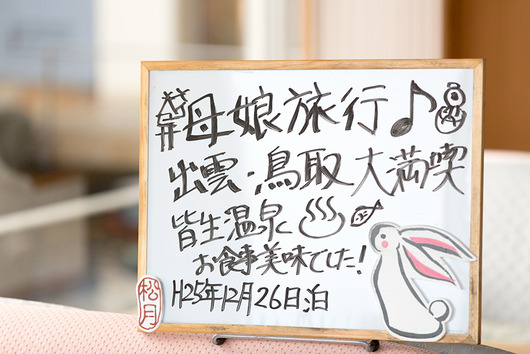 母娘旅行♪
出雲・鳥取大満喫
皆生温泉♨
お食事美味でした!
H25年12月26日泊
松月